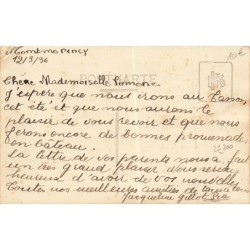 Montmorency
12/3/36
Chère Mademoiselle Simone
CARTE
J'espère que nous irons au
cet été et que nous aurons le
plaisir de vous revoir et que nous
ferons encore des bonnes promenades
en bateau.
La lettre de vos parents nous a fait
un très grand plaisir vous seriez
heureuse d'avoir de vos nouvelles
Toute nos meilleures amitiés de
Jacqueline